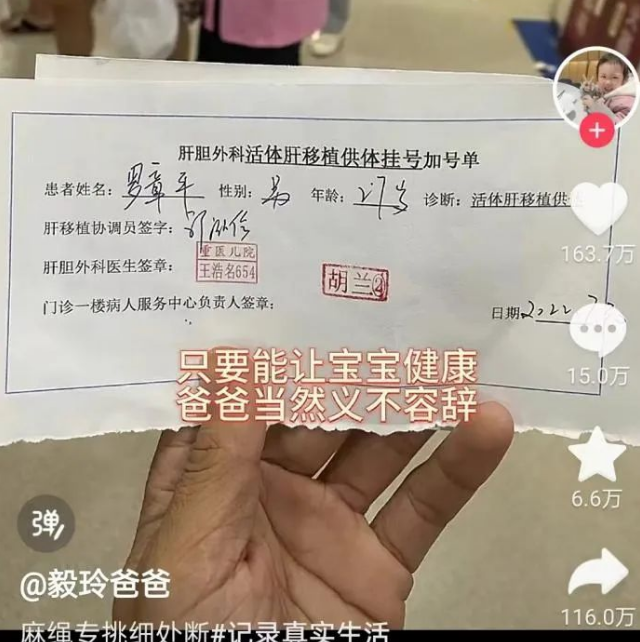 肝胆外科活体肝移植供体挂号加号单
患者姓名：罗章平 性别：男 年龄：27岁 诊断：活体肝移植供
肝移植协调员签字：
肝胆外科医生签章：重医儿院
王浩名654
胡兰②
门诊一楼病人服务中心负责人签章：
日期 2022
163.7万
15.0万
只要能让宝宝健康
爸爸当然义不容辞
6.6万
弹
@毅玲爸爸
116.0万
麻绳专挑细处断#记录真实生活